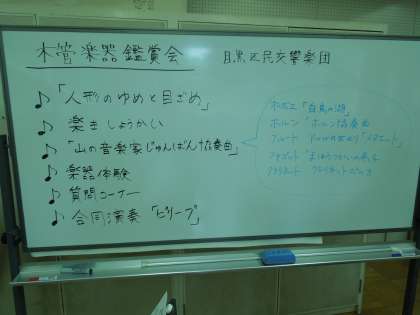 木管楽器鑑賞会 目黒区民交響楽団
♪「人形のゆめと目ざめ」
♪ 楽きしょうかい
♪「山の音楽家じゅんばん協奏曲」
♪ 楽器体験
♪ 質問コーナー
♪ 合同演奏「ビリーブ」
オーボエ「白鳥の湖」
ホルン「ホルン協奏曲」
フルート 「メヌエット」
ファゴット
クラリネット クラリネット